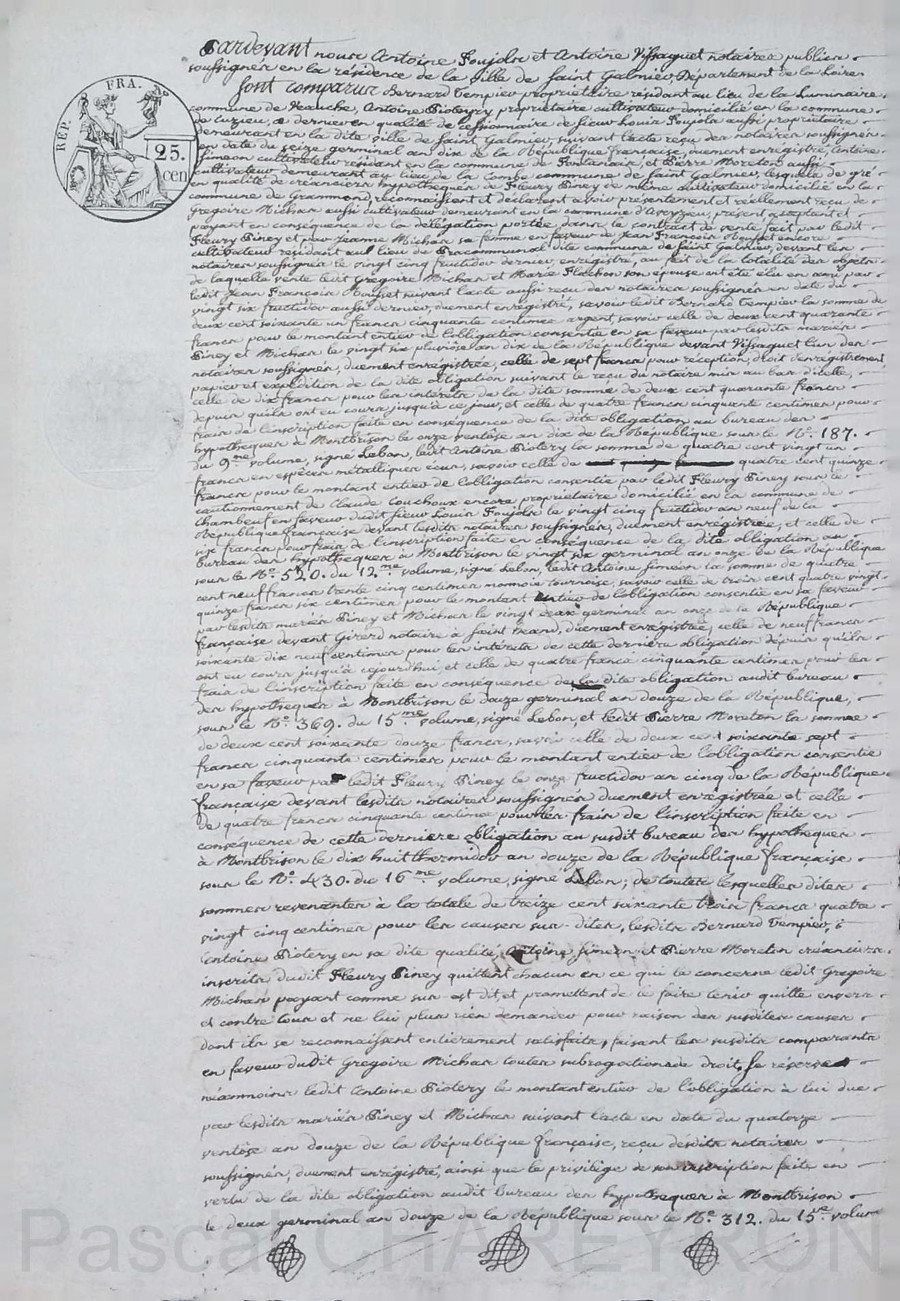 Pardevant nous Antoine Poujols et Antoine Vissaguet notaires publics
soussignés en la résidence de la Ville de Saint Galmier, Département de la Loire
Sont comparus Bernard Tempier propriétaire résidant au lieu de la Luminaire,
commune de Veauche, Antoine Siotery propriétaire cultivateur domicilié en la commune
de Cuzieu, ce dernier en qualité de cessionnaire de sieur Louis Poujols aussi propriétaire
demeurant en la dite ville de Saint Galmier, suivant l'acte reçu des notaires soussignés
en date du seize germinal an dix de la République française, duement enregistré, Antoine
Simeon cultivateur résidant en la commune de Fontanais, et Pierre Moreton aussi
cultivateur demeurant au lieu de la Combe commune de Saint Galmier, lesquels de gré
en qualité de créanciers hypothéqués de Fleury Piney de même cultivateur domicilié en la
commune de Grammond, reconnaissent et déclarent avoir présentement et réellement reçu de
Gregoire Michas aussi cultivateur demeurant en la commune d'Aveyzieu, présent acceptant et
payant en conséquence de la délégation portée dans le contrat de vente fait par ledit
Fleury Piney et par Jeanne Michas sa femme en faveur de Jean François Bousset encore
cultivateur résidant au lieu de dite commune de Saint Galmier, devant les
notaires soussignés le vingt cinq fructidor dernier, enregistré, au fait de la totalité des objets
de laquelle vente ledit Gregoire Michas et Marie Flachon son épouse ont été élu en ami par
ledit Jean François Bousset suivant l'acte aussi reçu des notaires soussignés en date du
vingt six fructidor aussi dernier, duement enregistré, savoir ledit Bernard Tempier la somme de
deux cent soixante un francs cinquante centimes argent savoir celle de deux cent quarante
francs pour le montant entier de l'obligation consentie en sa faveur par lesdits mariés
Piney et Michas le vingt six pluviôse an dix de la République devant Vissaguet l'un des
notaires soussignés, duement enregistrée, celle de sept francs pour réception, droit d'enregistrement
papier et expédition de la dite obligation suivant le reçu du notaire mis au bas d'icelle,
celle de dix francs pour les intérêts de la dite somme de deux cent quarante francs
depuis quils ont eu cours jusqu'à ce jour, et celle de quatre francs cinquante centimes pour
frais de l'inscription faite en conséquence de la dite obligation au bureau des
hypothèques de Montbrison le onze ventôse an dix de la République sous le N.º 187.
du 9.me volume, signé Lebon, ledit Antoine Siotery la somme de quatre cent vingt un
francs en espèces métalliques écus, savoir celle de quatre cent quinze
francs pour le montant entier de l'obligation consentie par ledit Fleury Piney sous le
cautionnement de Claude Couchoux encore propriétaire domicilié en la commune de
Chambeuf en faveur dudit sieur Louis Poujols le vingt cinq fructidor an neuf de la
République française devant lesdits notaires soussignés, duement enregistrée, et celle de
six francs pour frais de l'inscription faite en conséquence de la dite obligation au
bureau des hypothèques à Montbrison le vingt six germinal an onze de la République
sous le N.º 520. du 12.me volume, signé Lebon, ledit Antoine Simeon la somme de quatre
cent neuf francs trente cinq centimes monnoie tournoise, savoir celle de trois cent quatre vingt
quinze francs six centimes pour le montant entier de l'obligation consentie en sa faveur
par lesdits mariés Piney et Michas le vingt deux germinal an onze de la République
française devant Girard notaire à Saint heand, duement enregistrée, celle de neuf francs
soixante dix neuf centimes pour les intérêts de cette dernière obligation depuis quils
ont eu cours jusqu'à cejourd'hui, et celle de quatre francs cinquante centimes pour les
frais de l'inscription faite en conséquence de la dite obligation audit bureau
des hypothèques à Montbrison le douze germinal an douze de la République,
sous le N.º 369. du 15.me volume, signé Lebon, et ledit Pierre Moreton la somme
de deux cent soixante douze francs, savoir celle de deux cent soixante sept
francs cinquante centimes pour le montant entier de l'obligation consentie
en sa faveur par ledit Fleury Piney le onze fructidor an cinq de la République
française devant lesdits notaires soussignés duement enregistrée et celle
de quatre francs cinquante centimes pour les frais de l'inscription faite en
conséquence de cette dernière obligation au susdit bureau des hypothèques
à Montbrison le dix huit thermidor an douze de la République française
sous le N.º 430. du 16.me volume, signé Lebon; de toutes lesquelles dites
sommes revenantes à la totale de treize cent soixante trois francs quatre
vingt cinq centimes pour les causes sus-dites, lesdits Bernard Tempier,
Antoine Siotery en sa dite qualité, Antoine Simeon et Pierre Moreton créanciers
inscrits dudit Fleury Piney quittent chacun en ce qui le concerne ledit Gregoire
Michas payant comme sus-est dit, et promettent de le faire tenir quitte envers
et contre tous et ne lui plus rien demander pour raison des susdites causes
dont ils se reconnaissent entièrement satisfaits, faisant les susdits comparants
en faveur dudit Gregoire Michas toutes subrogations de droit, se réserve
néanmoins ledit Antoine Siotery le montant entier de l'obligation à lui due
par lesdits mariés Piney et Michas suivant l'acte en date du quatorze
ventôse an douze de la République française, reçu desdits notaires
soussignés, duement enregistré, ainsi que le privilège de son inscription faite en
vertu de la dite obligation audit bureau des hypothèques à Montbrison
le deux germinal an douze de la République sous le N.º 312. du 15.e volume
REP. FRA.
25.
cen
Pascal CHAREYRON